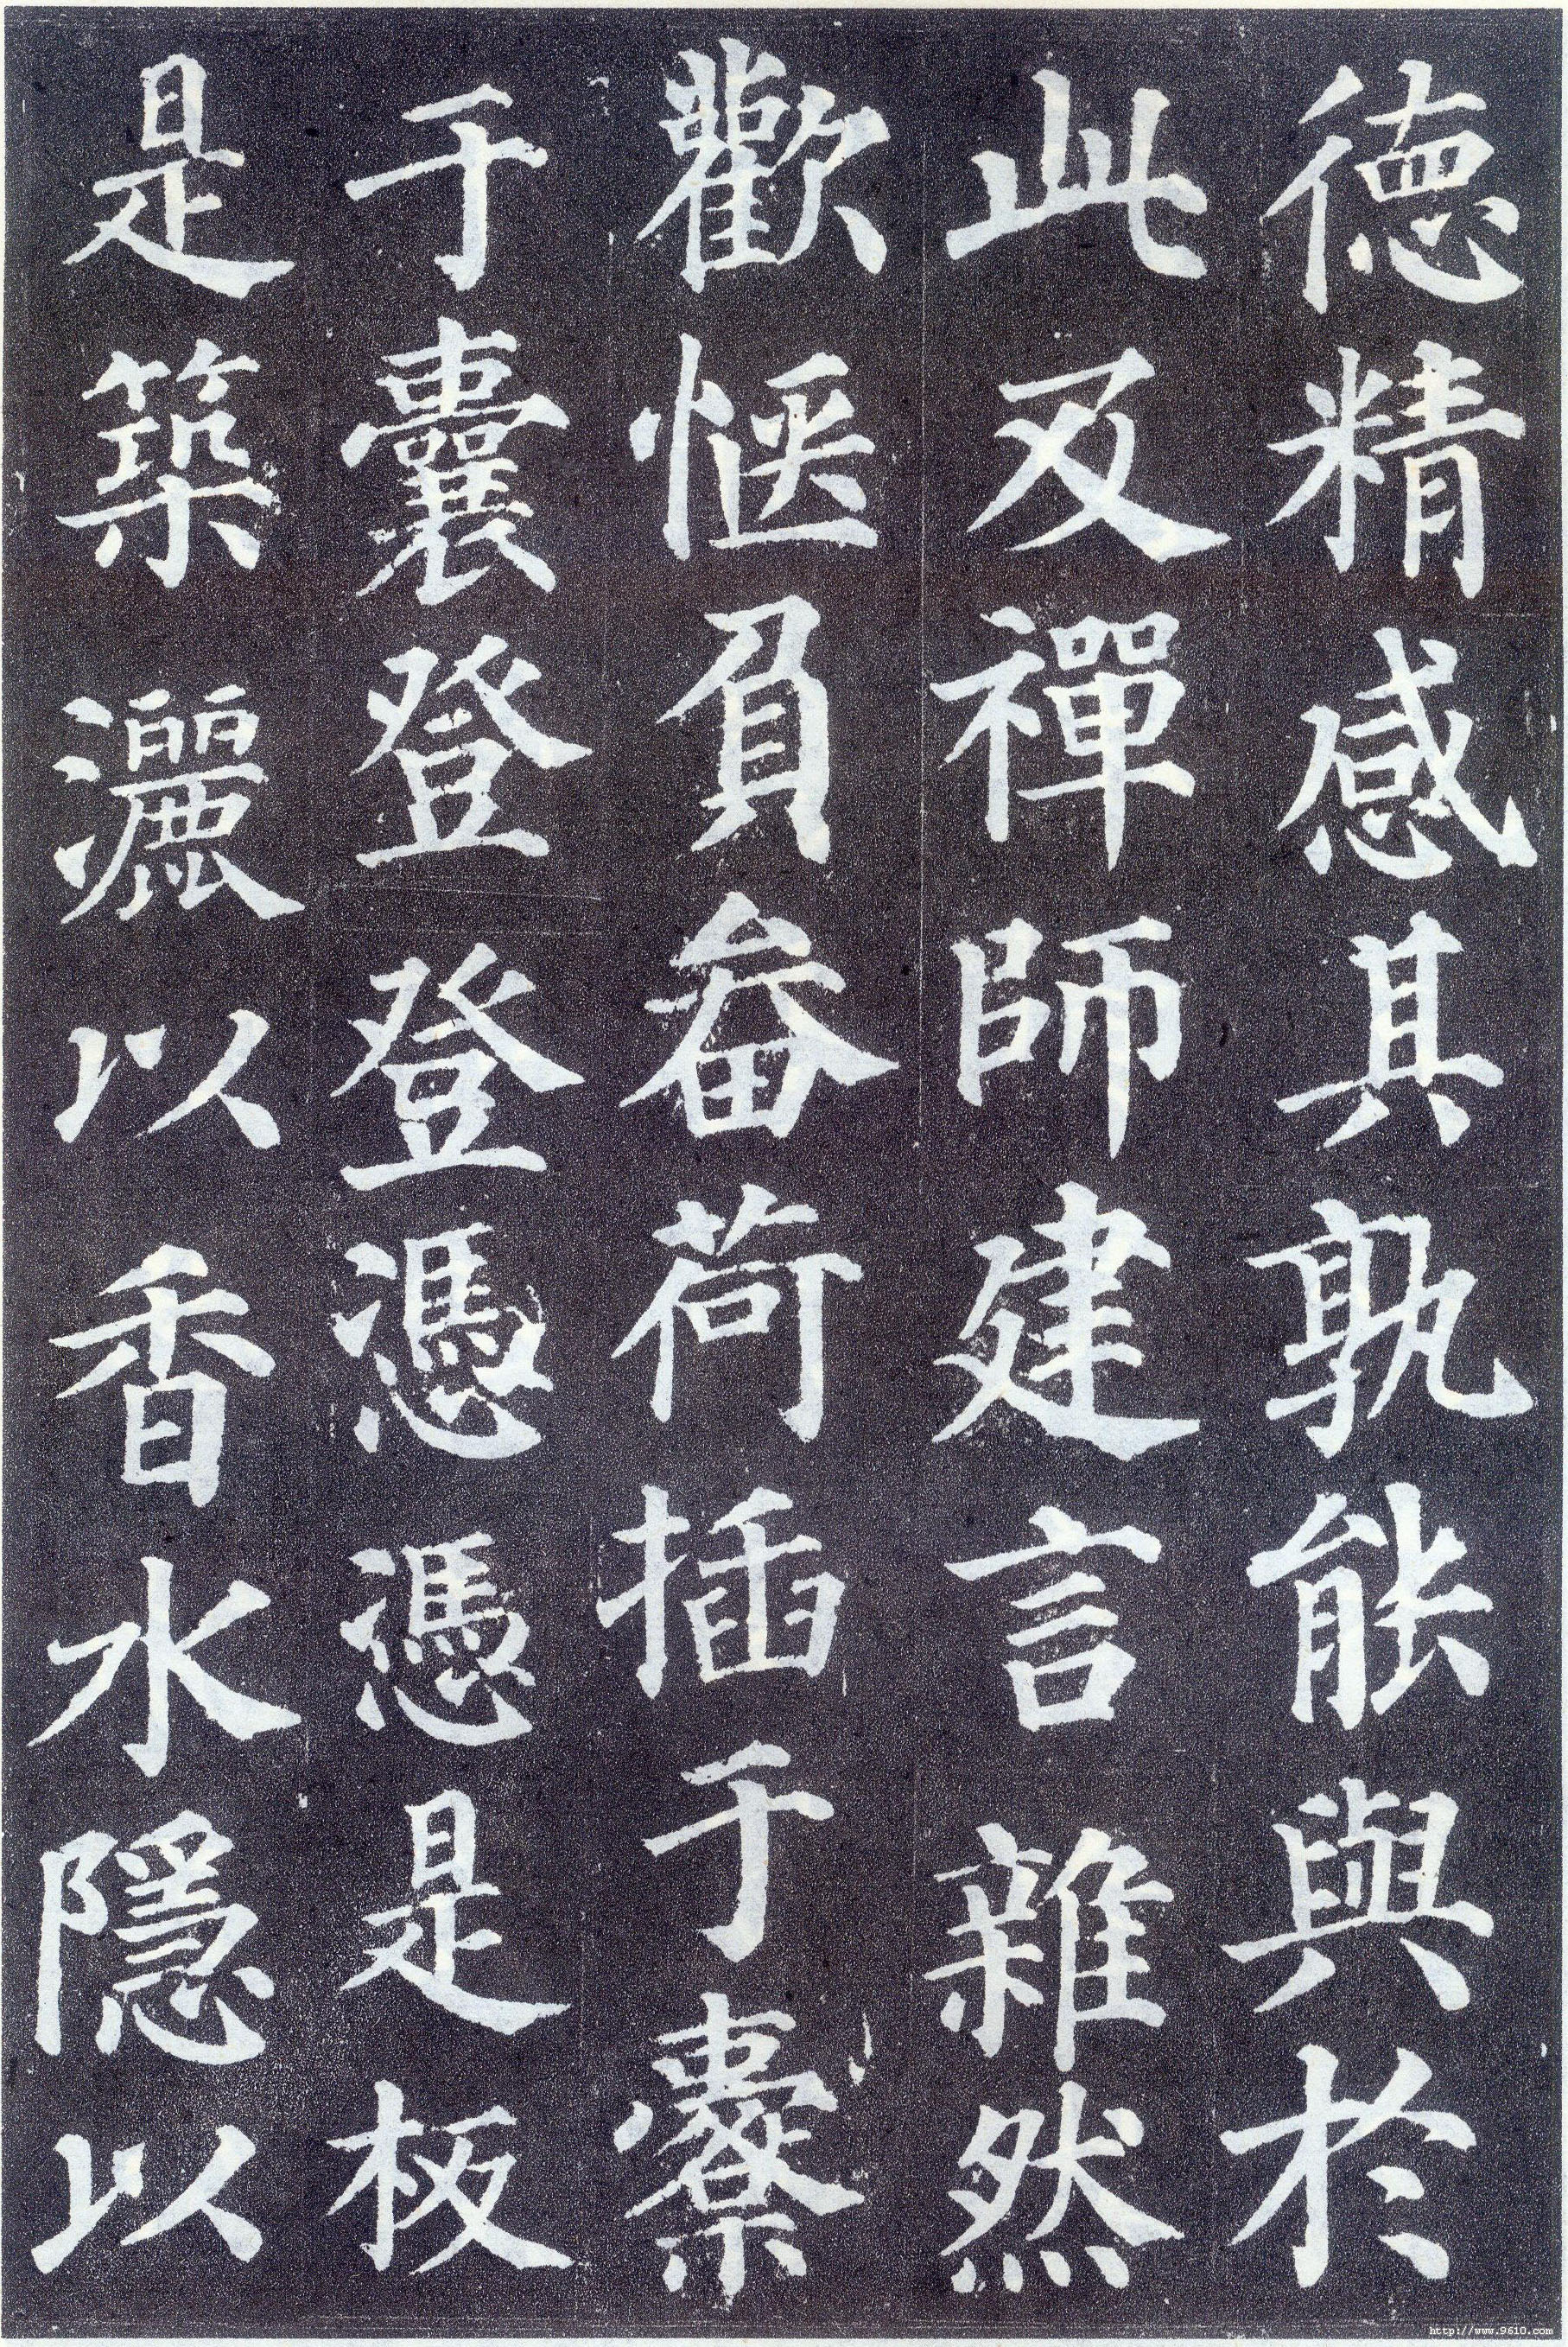 德精感其孰能與於
此及禪師建言雜然
歡愜負畚荷插于橐
于囊登登憑憑是板
是築灑以香水隱以
http://www.9610.com